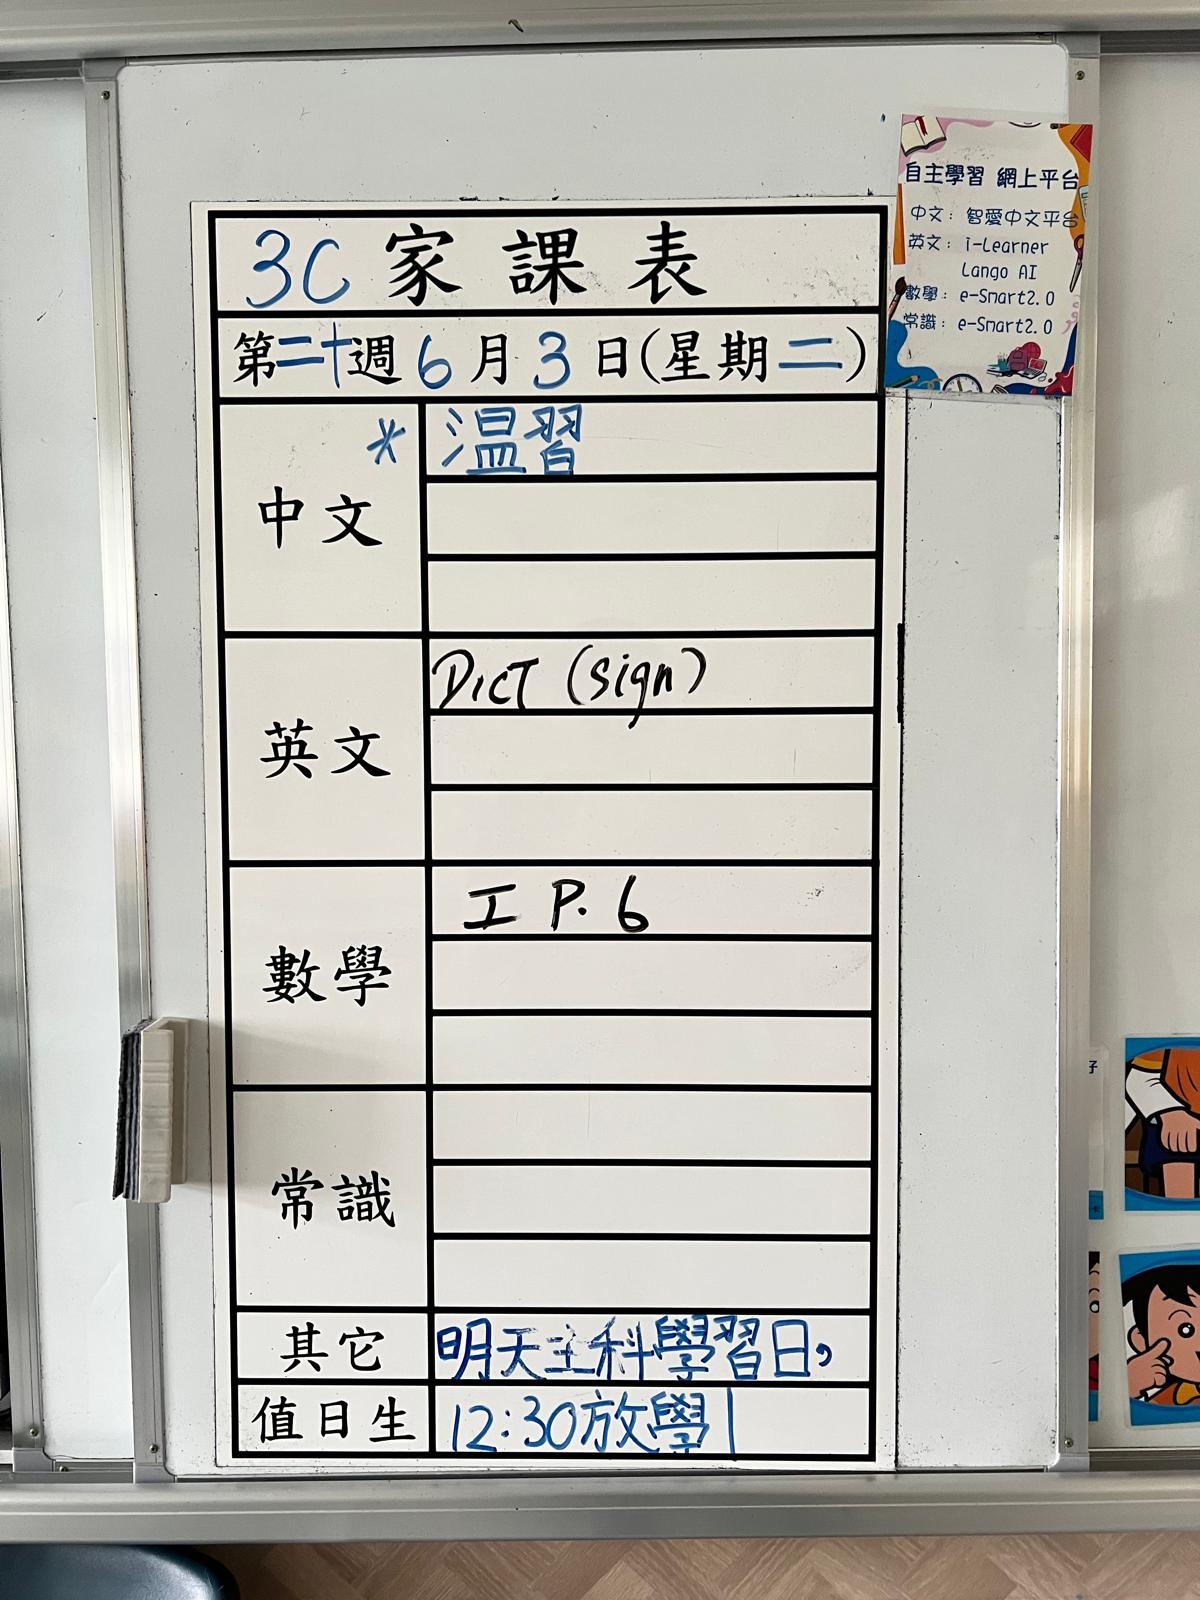 3C 家課表
第二十週 6月3日(星期二)
中文
* 温習
英文
Dict (sign)
數學
工 P.6
常識
其它
明天主科學習日,
值日生
12:30放學
自主學習 網上平台
中文: 智愛中文平台
英文: i-Learner
Lango AI
數學: e-Smart2.0
常識: e-Smart2.0
好